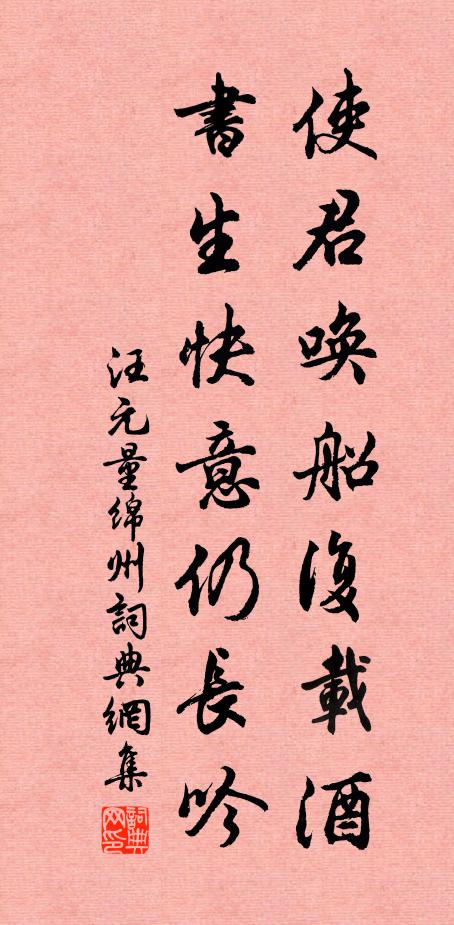 使君唤船復載酒
書生快意仍長吟
汪元量綿州詞典網集
詞典网印